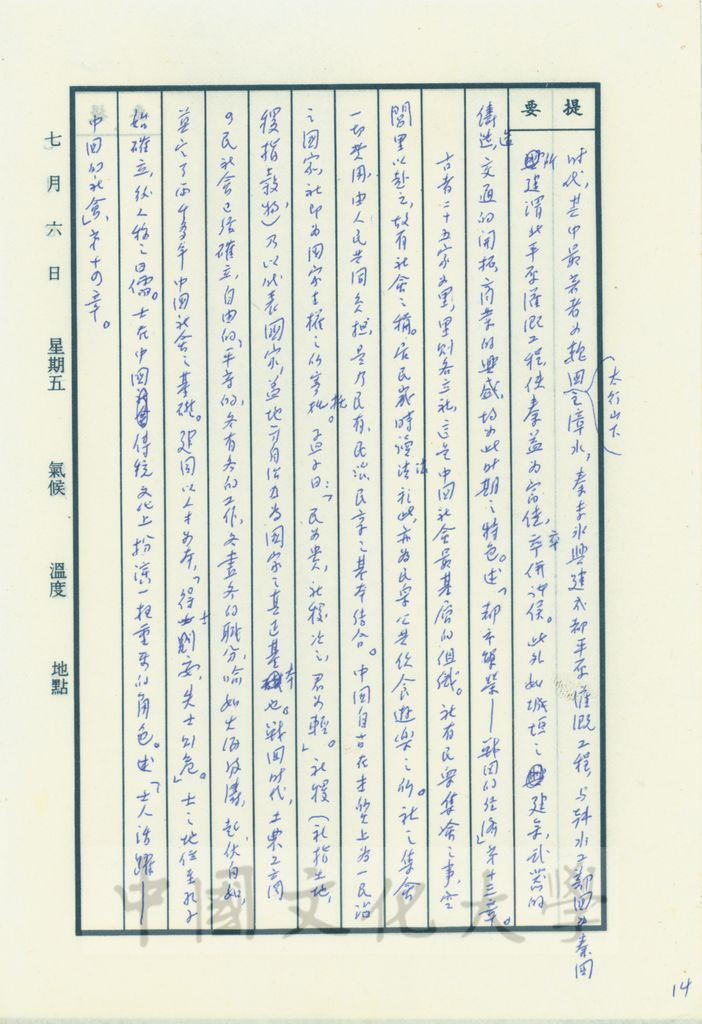 提要
時代,其中最著者為魏國之漳水,秦李冰興建成都平原灌溉工程,与韓水工鄭國為秦國
太行山下
所建渭北平原灌溉工程,使秦益為富饒,卒併諸侯。此外如城垣之建築,武器的
鑄造,交通的開拓,商業的興盛,均為此時期之特色。述「都市繁榮—戰國的經濟」第十三章。
古者二十五家為里,里則各立社,這是中國社會最基層的組織。社有民眾集會之事,空
閭里以赴之,故有社會之稱。居民歲時讀法於此,亦為民眾公共飲食遊樂之所。社之集會
一切費用,由人民共同負擔,是乃民有、民治、民享之基本結合。中國自古在本質上為一民治
之國家,社即為國家主權之所寄託。孟子曰:「民為貴,社稷次之,君為輕」。社稷(社指土地,
稷指穀物)乃以代表國家,蓋地方自治乃為國家之真正基本也。戰國時代,士農工商
的民社會已經確立,自由的,平等的,各有各的工作,各盡各的職分,喻如大海波濤,起伏自如,
奠定了兩千多年中國社會之基礎。建國以人才為本,「得士則安,失士則危。」士之地位至孔子
始確立,後人稱之曰儒。士在中國傳統文化上扮演一極重要的角色。述「士人活躍—
中國的社會」第十四章。
七月六日 星期五 氣候 溫度 地點
中國文化大學
14